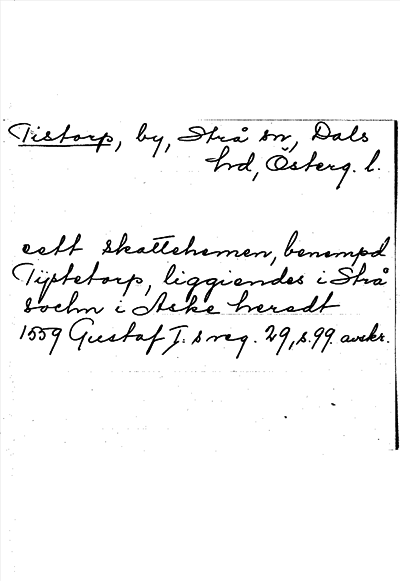 Tistorp, by, Strå sn, Dals
hd, Österg. l.
eett skattehemen, benempd
Tijstetorp, liggiendes i Strå
sochn i Aske heredt
1559 Gustaf I:s reg. 29, s. 99. avskr.